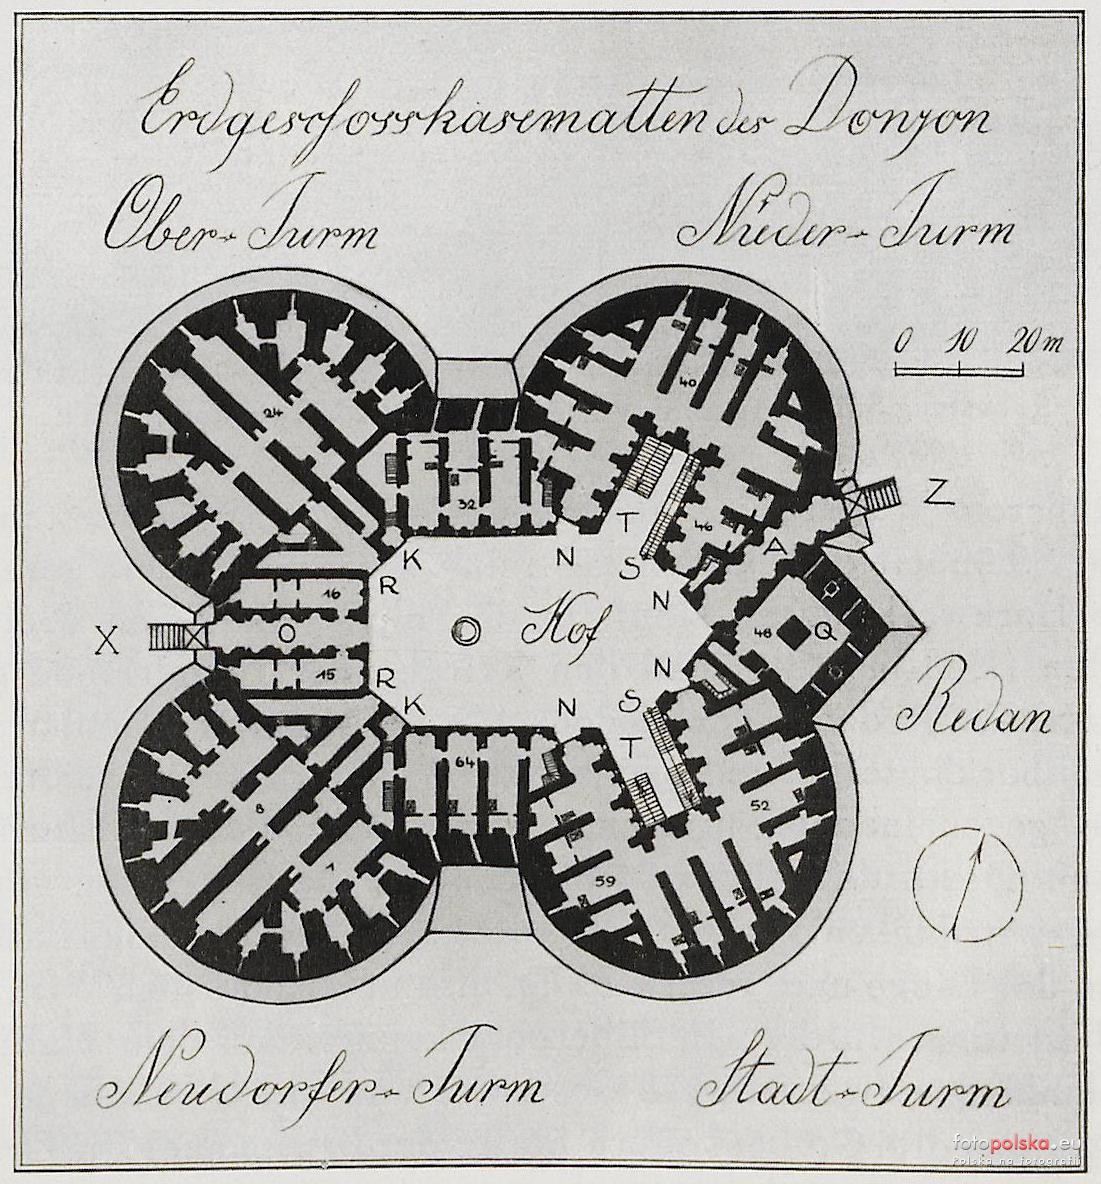 Erdgeschosskasematten des Donjon
Ober-Turm
Nieder-Turm
0 10 20 m
24
40
32
Z
T
46
A
S
K
N
R
16
N
X
O
Hof
48
Q
15
R
K
N
N
S
Redan
T
64
8
52
7
59
Neudorfer-Turm
Stadt-Turm
fotopolska.eu
Polska na fotografii